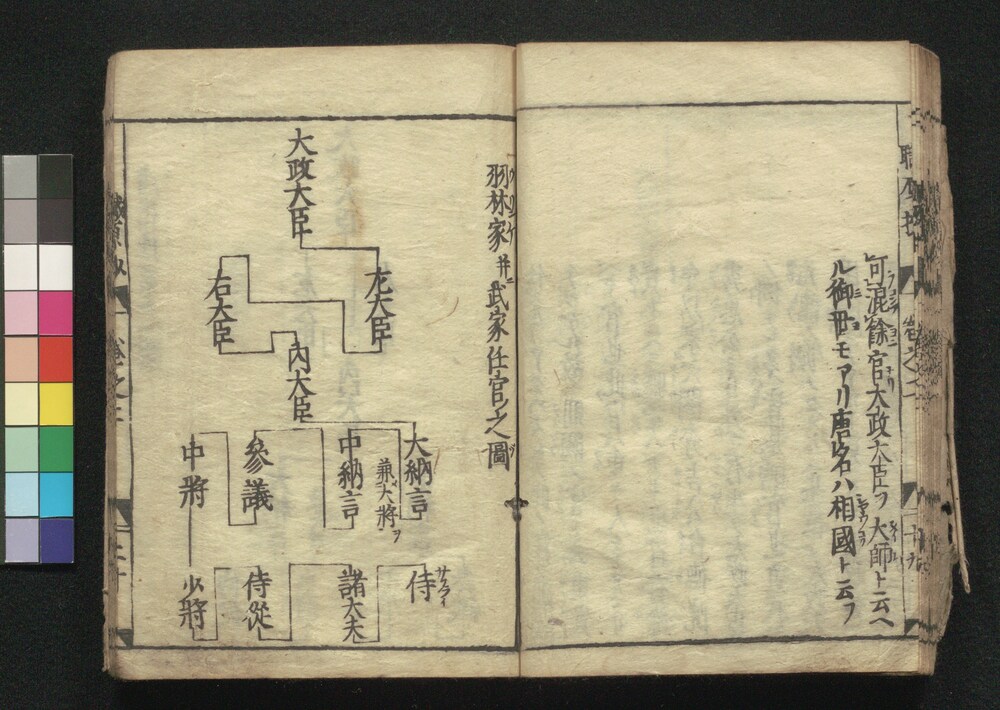 可混餘官大政大臣ヲ大師ト云ヘ
ル御世モアリ唐名ハ相國ト云フ
羽林家并ニ武家任官之圖
大政大臣
左大臣
右大臣
内大臣
大納言
兼大將ヲ
中納言
參議
中將
侍
サムライ
諸大夫
侍從
少將